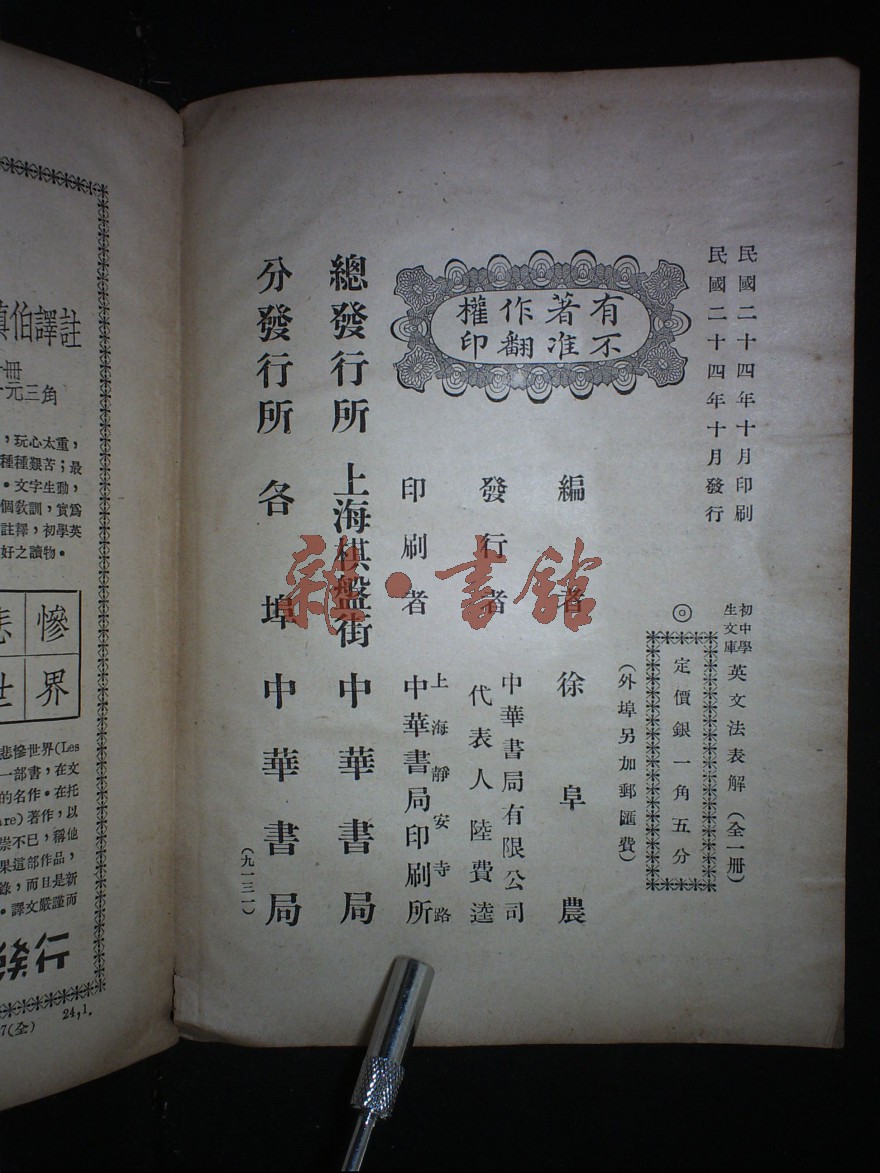 民國二十四年十月印刷
民國二十四年十月發行
初中學生文庫 英文法表解 (全一冊)
◎定價銀一角五分
(外埠另加郵匯費)
有著作權
不准翻印
編者 徐阜農
發行者 中華書局有限公司
代表人陸費逵
印刷者 上海靜安寺路
中華書局印刷所
總發行所 上海棋盤街 中華書局
分發行所 各埠中華書局
(九一三一)
雜·書館
伯譯註
冊
元三角
,玩心太重,
種種艱苦;最
。文字生動,
個教訓,實爲
註釋,初學英
好之讀物。
慘
世界
悲慘世界(Les
一部書,在文
的名作。在托
are)著作,以
崇不已,稱他
果這部作品,
錄,而且是新
。譯文嚴謹而
發行
7(全)
24,1.